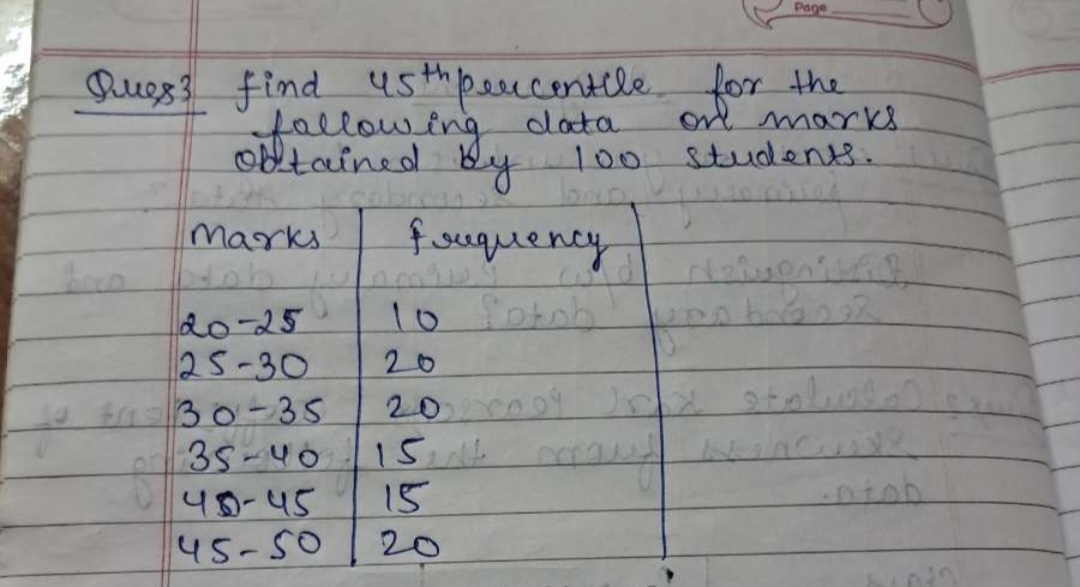 Page
Ques3 find 45th percentile for the
following data on marks
obtained by 100 students.
Marks frequency
20-25 10
25-30 20
30-35 20
35-40 15
40-45 15
45-50 20